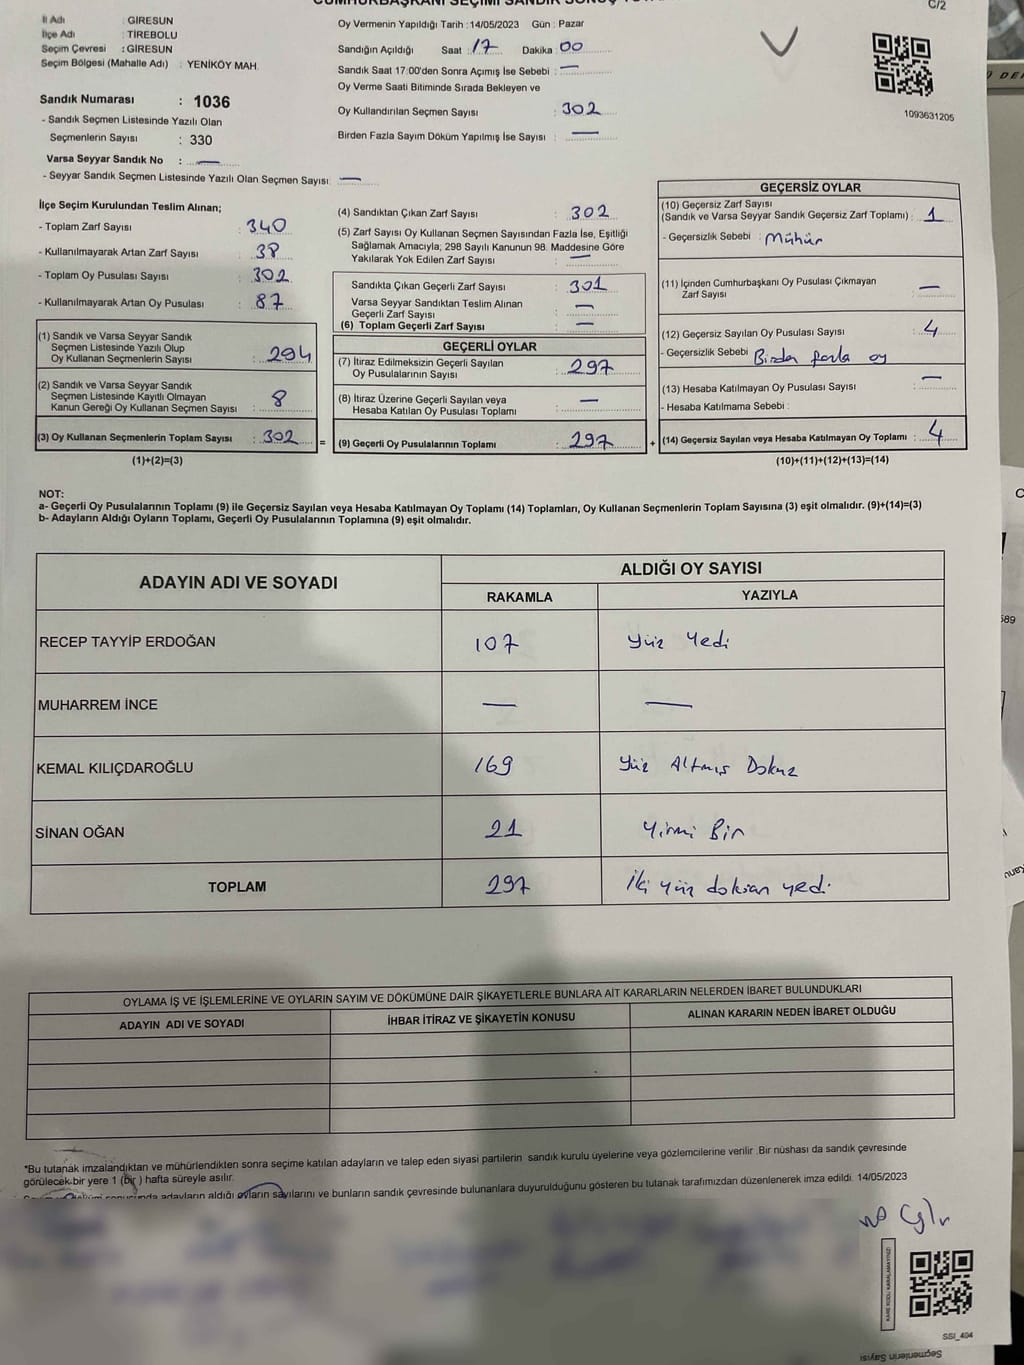 C/2
İl Adı : GİRESUN
İlçe Adı : TİREBOLU
Seçim Çevresi : GİRESUN
Seçim Bölgesi (Mahalle Adı) : YENİKÖY MAH.
Sandık Numarası : 1036
- Sandık Seçmen Listesinde Yazılı Olan
Seçmenlerin Sayısı : 330
Varsa Seyyar Sandık No : —
- Seyyar Sandık Seçmen Listesinde Yazılı Olan Seçmen Sayısı : —
Oy Vermenin Yapıldığı Tarih : 14/05/2023 Gün : Pazar
Sandığın Açıldığı Saat : 17 Dakika : 00
Sandık Saat 17:00'den Sonra Açımış İse Sebebi : —
Oy Verme Saati Bitiminde Sırada Bekleyen ve
Oy Kullandırılan Seçmen Sayısı : 302
Birden Fazla Sayım Döküm Yapılmış İse Sayısı : —
1093631205
İlçe Seçim Kurulundan Teslim Alınan;
- Toplam Zarf Sayısı : 340
- Kullanılmayarak Artan Zarf Sayısı : 38
- Toplam Oy Pusulası Sayısı : 302
- Kullanılmayarak Artan Oy Pusulası : 87
(1) Sandık ve Varsa Seyyar Sandık
Seçmen Listesinde Yazılı Olup
Oy Kullanan Seçmenlerin Sayısı : 294
(2) Sandık ve Varsa Seyyar Sandık
Seçmen Listesinde Kayıtlı Olmayan
Kanun Gereği Oy Kullanan Seçmen Sayısı : 8
(3) Oy Kullanan Seçmenlerin Toplam Sayısı : 302 =
(1)+(2)=(3)
(4) Sandıktan Çıkan Zarf Sayısı : 302
(5) Zarf Sayısı Oy Kullanan Seçmen Sayısından Fazla İse, Eşitliği
Sağlamak Amacıyla; 298 Sayılı Kanunun 98. Maddesine Göre
Yakılarak Yok Edilen Zarf Sayısı : —
Sandıkta Çıkan Geçerli Zarf Sayısı : 301
Varsa Seyyar Sandıktan Teslim Alınan
Geçerli Zarf Sayısı : —
(6) Toplam Geçerli Zarf Sayısı : —
GEÇERLİ OYLAR
(7) İtiraz Edilmeksizin Geçerli Sayılan
Oy Pusulalarının Sayısı : 297
(8) İtiraz Üzerine Geçerli Sayılan veya
Hesaba Katılan Oy Pusulası Toplamı : —
(9) Geçerli Oy Pusulalarının Toplamı : 297 +
GEÇERSİZ OYLAR
(10) Geçersiz Zarf Sayısı
(Sandık ve Varsa Seyyar Sandık Geçersiz Zarf Toplamı) : 1
- Geçersizlik Sebebi : Mühür
(11) İçinden Cumhurbaşkanı Oy Pusulası Çıkmayan
Zarf Sayısı : —
(12) Geçersiz Sayılan Oy Pusulası Sayısı : 4
- Geçersizlik Sebebi : Birden fazla oy
(13) Hesaba Katılmayan Oy Pusulası Sayısı : —
- Hesaba Katılmama Sebebi :
(14) Geçersiz Sayılan veya Hesaba Katılmayan Oy Toplamı : 4
(10)+(11)+(12)+(13)=(14)
NOT:
a- Geçerli Oy Pusulalarının Toplamı (9) ile Geçersiz Sayılan veya Hesaba Katılmayan Oy Toplamı (14) Toplamları, Oy Kullanan Seçmenlerin Toplam Sayısına (3) eşit olmalıdır. (9)+(14)=(3)
b- Adayların Aldığı Oyların Toplamı, Geçerli Oy Pusulalarının Toplamına (9) eşit olmalıdır.
ADAYIN ADI VE SOYADI ALDIĞI OY SAYISI
RAKAMLA YAZIYLA
RECEP TAYYİP ERDOĞAN 107 Yüz Yedi
MUHARREM İNCE — —
KEMAL KILIÇDAROĞLU 169 Yüz Altmış Dokuz
SİNAN OĞAN 21 Yirmi Bir
TOPLAM 297 İki yüz doksan yedi
OYLAMA İŞ VE İŞLEMLERİNE VE OYLARIN SAYIM VE DÖKÜMÜNE DAİR ŞİKAYETLERLE BUNLARA AİT KARARLARIN NELERDEN İBARET BULUNDUKLARI
ADAYIN ADI VE SOYADI İHBAR İTİRAZ VE ŞİKAYETİN KONUSU ALINAN KARARIN NEDEN İBARET OLDUĞU
*Bu tutanak imzalandıktan ve mühürlendikten sonra seçime katılan adayların ve talep eden siyasi partilerin sandık kurulu üyelerine veya gözlemcilerine verilir. Bir nüshası da sandık çevresinde
görülecek bir yere 1 (bir) hafta süreyle asılır.
adayların aldığı oyların sayılarını ve bunların sandık çevresinde bulunanlara duyurulduğunu gösteren bu tutanak tarafımızdan düzenlenerek imza edildi. 14/05/2023
KARE KODU KARALAMAYINIZ!
SSI_404
Seçmenlerin Sayısı